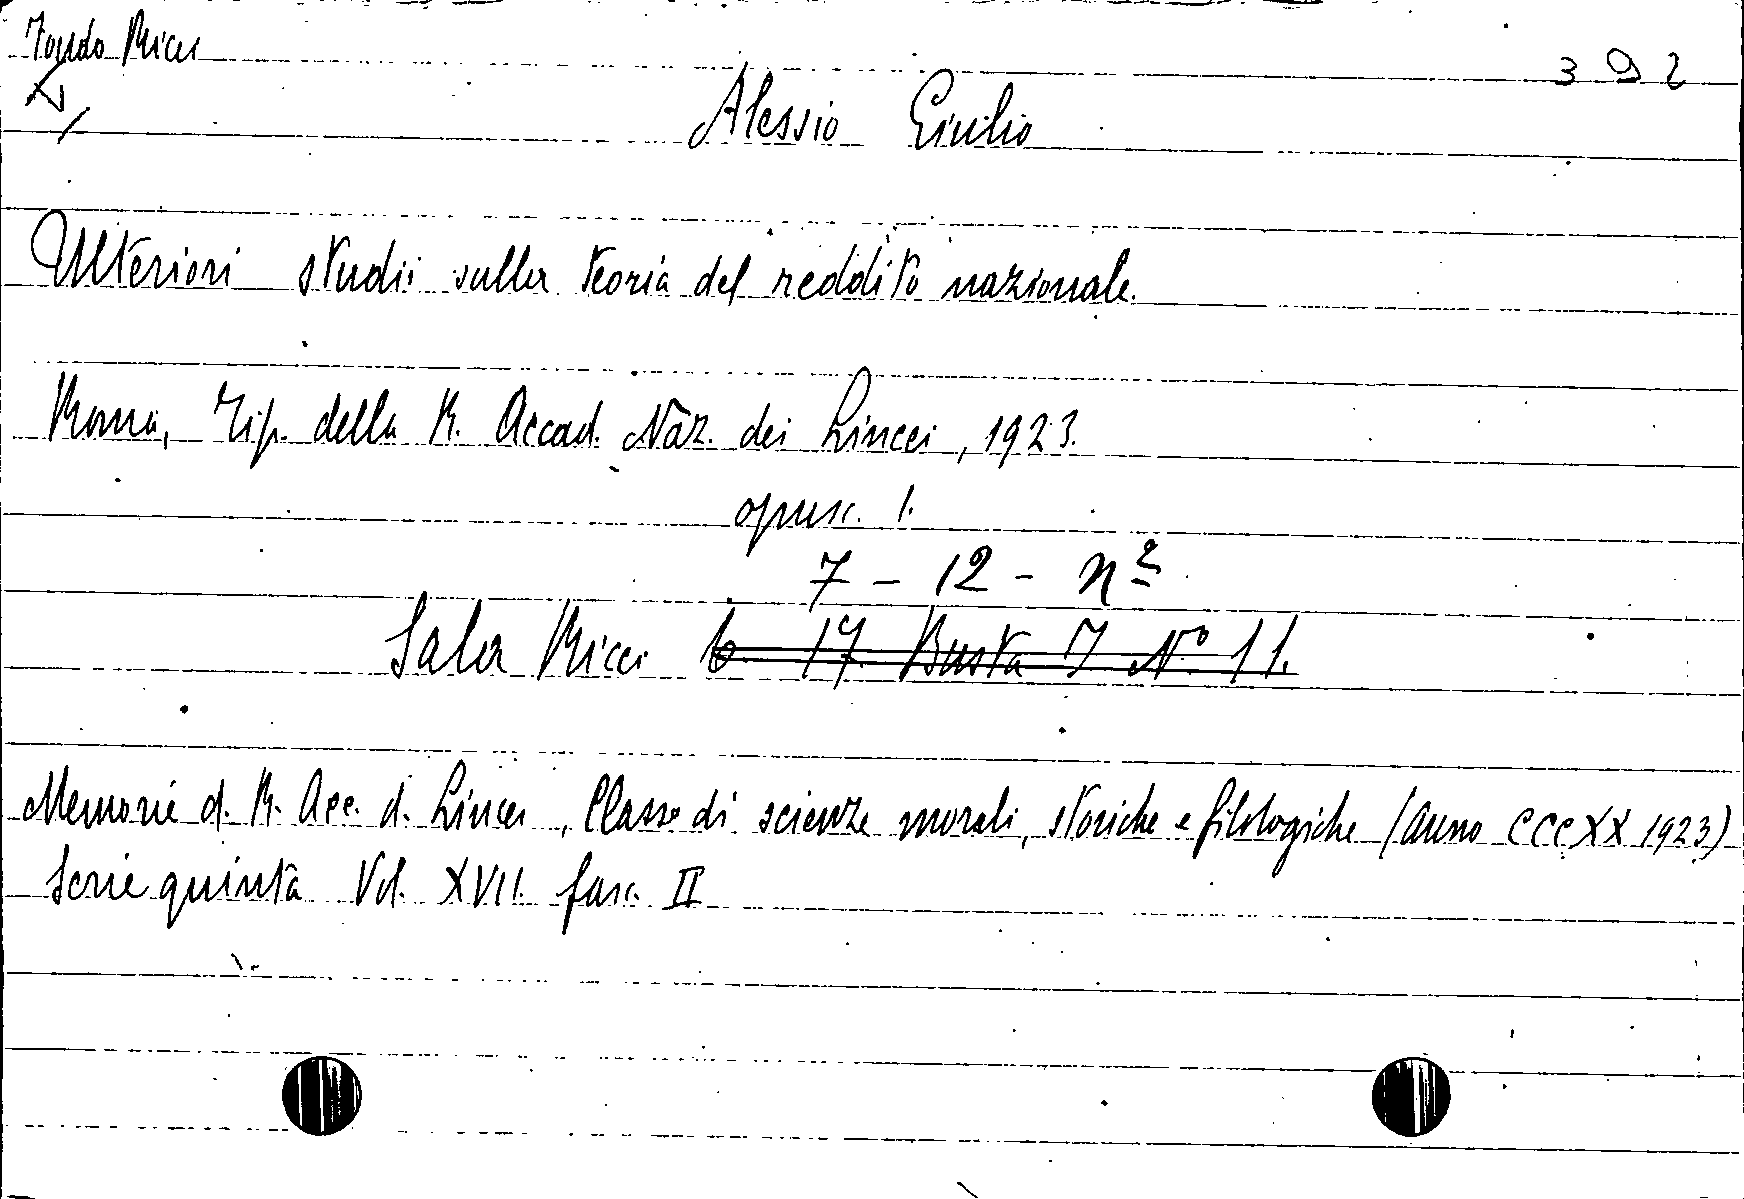 Fondo Ricci
392
Alessio Giulio
Ulteriori studii sulla teoria del reddito nazionale.
Roma, Tip. della R. Accad. Naz. dei Lincei, 1923.
opusc. 1.
7 - 12 - n 2
Sala Ricci b. 17. Busta 7 N° 11.
Memorie d. R. Acc. d. Lincei, Classe di scienze morali, storiche e filologiche (anno CCCXX 1923)
Serie quinta Vol. XVII. fasc. II